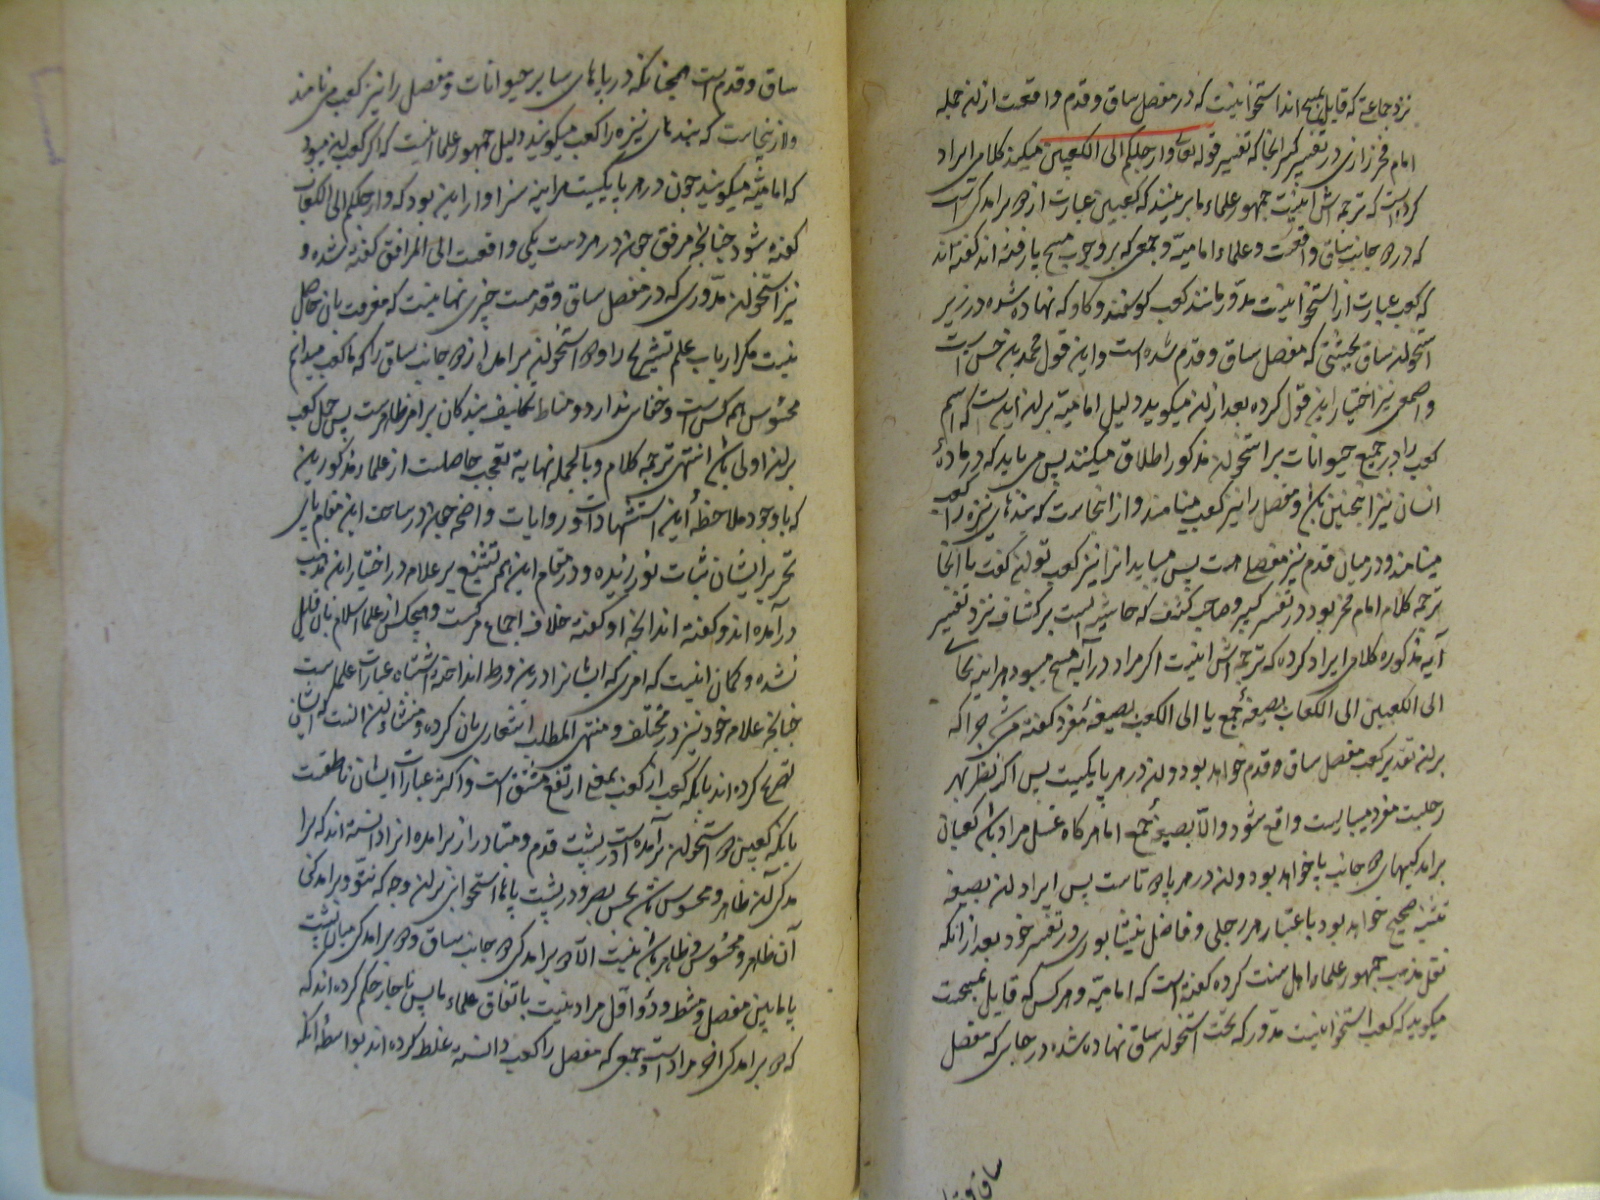 نزد جماعتی که قایل بمسح اند استخوانیست که در مفصل ساق و قدم واقعست از آن جمله
امام فخر رازی در تفسیر کبیر انجا که تفسیر قوله تعالی وارجلکم الی الکعبین میکند کلامی ایراد
کرده است که ترجمه اش اینست جمهور علماء ما برینند که کعبین عبارت از دو برامدگی است
که در دو جانب ساق واقعست و علماء امامیه و جمعی که بر وجوب مسح پا رفته اند گفته اند
که کعب عبارت از استخوانیست مدور مانند کعب گوسفند و گاو که نهاده شده در زیر
استخوان ساق بحیثیتی که مفصل ساق و قدم شده است و این قول محمد بن حسن است
و اصمعی نیز اختیار این قول کرده بعد از آن میگوید دلیل امامیه بر آن اینست که اسم
کعب را در جمیع حیوانات بر استخوان مذکور اطلاق میکنند پس می باید که در ماده
انسان نیز اینچنین باشد و مفصل را نیز کعب مینامند و از اینجاست که بندهای نیزه را کعب
مینامند و در میان قدم نیز مفصلی هست پس میباید انرا نیز کعب توان گفت تا اینجا
ترجمه کلام امام فخر بود در تفسیر کبیر و صاحب کشف که حاشیه ایست بر کشاف نزد تفسیر
آیه مذکوره کلامی ایراد کرده که ترجمه اش اینست اگر مراد در آیه مسح میبود هر اینه بجای
الی الکعبین الی الکعاب بصیغه جمع یا الی الکعب بصیغه مفرد گفته میشد چرا که
بر آن تقدیر کعب مفصل ساق و قدم خواهد بود و آن در هر پا یکیست پس اگر نظر بهر
رجلیست مفرد میبایست واقع شود والا بصیغه جمع اما هر گاه غسل مراد باشد کعبان
برامدگیهای دو جانب پا خواهد بود و آن در هر پا دو تاست پس ایراد آن بصیغه
تثنیه صحیح خواهد بود باعتبار هر رجلی و فاضل نیشابوری در تفسیر خود بعد از انکه
نقل مذهب جمهور علماء اهل سنت کرده گفته است که امامیه و هر کس که قایل بمسحست
میگوید که کعب استخوانیست مدور که تحت استخوان ساق نهاده شده در جای که مفصل
ساق و قدم
ساق و قدم است همچنانکه در پاهای سایر حیوانات و مفصل را نیز کعب می نامند
و از اینجاست که بندهای نیزه را کعب میگویند دلیل جمهور علما اینست که اگر کعب آن میبود
که امامیه میگویند چون در هر پا یکیست هر اینه سزاوار این بود که وارجلکم الی الکعاب
گفته شود چنانچه مرفق چون در هر دست یکی واقعست الی المرافق گفته شده و
نیز استخوان مدوری که در مفصل ساق و قدمست چیزی نهانیست که معرفت بان حاصل
نیست مگر ارباب علم تشریح را و دو استخوان برامده از دو جانب ساق را که ما کعب میدانیم
محسوس همه کس است و خفای ندارد و مناط تکلیف بندگان بر امر ظاهرست پس حمل کعب
بر آن اولی باشد انتهی ترجمه کلام و بالجمله نهایة تعجب حاصلست از علماء مذکورین
که با وجود ملاحظه این استشهادات و روایات واضحه چون در ساحت این مقام پای
تحریر ایشان ثبات نورزیده و در مقام این همه تشنیع بر علامه در اختیار این مذهب
درآمده اند و گفته اند انچه او گفته خلاف اجماع فرقست و هیچکس از علماء اسلام بان قایل
نشده و گمان اینست که امری که ایشانرا درین ورطه انداخته اشتباه عبارات علماست
چنانچه علامه خود نیز در مختلف و منتهی المطلب اشعاری بان کرده و منشاء آن انست که ایشان
تصریح کرده اند بانکه کعب از کعب بمعنی ارتفع مشتق است و اکثر عبارات ایشان ناطقست
بانکه کعبین دو استخوان برآمده است در پشت قدم و متبادر از برامده انرا دانسته اند که برا
مدگی آن ظاهر و محسوس باشد بحس بصر و در پشت پاها استخوانی بر آن وجه که نتوّ و برامدگی
آن ظاهر و محسوس ظاهر باشد نیست الا دو برامدگی دو جانب ساق و دو برامدگی میان پشت
پا مابین مفصل و مشط و دو اول مراد نیست باتفاق علماء ما پس ناچار حکم کرده اند که
که دو برامدگی اخر مراد است و جمعی که مفصل را کعب دانسته غلط کرده اند بواسطه انکه